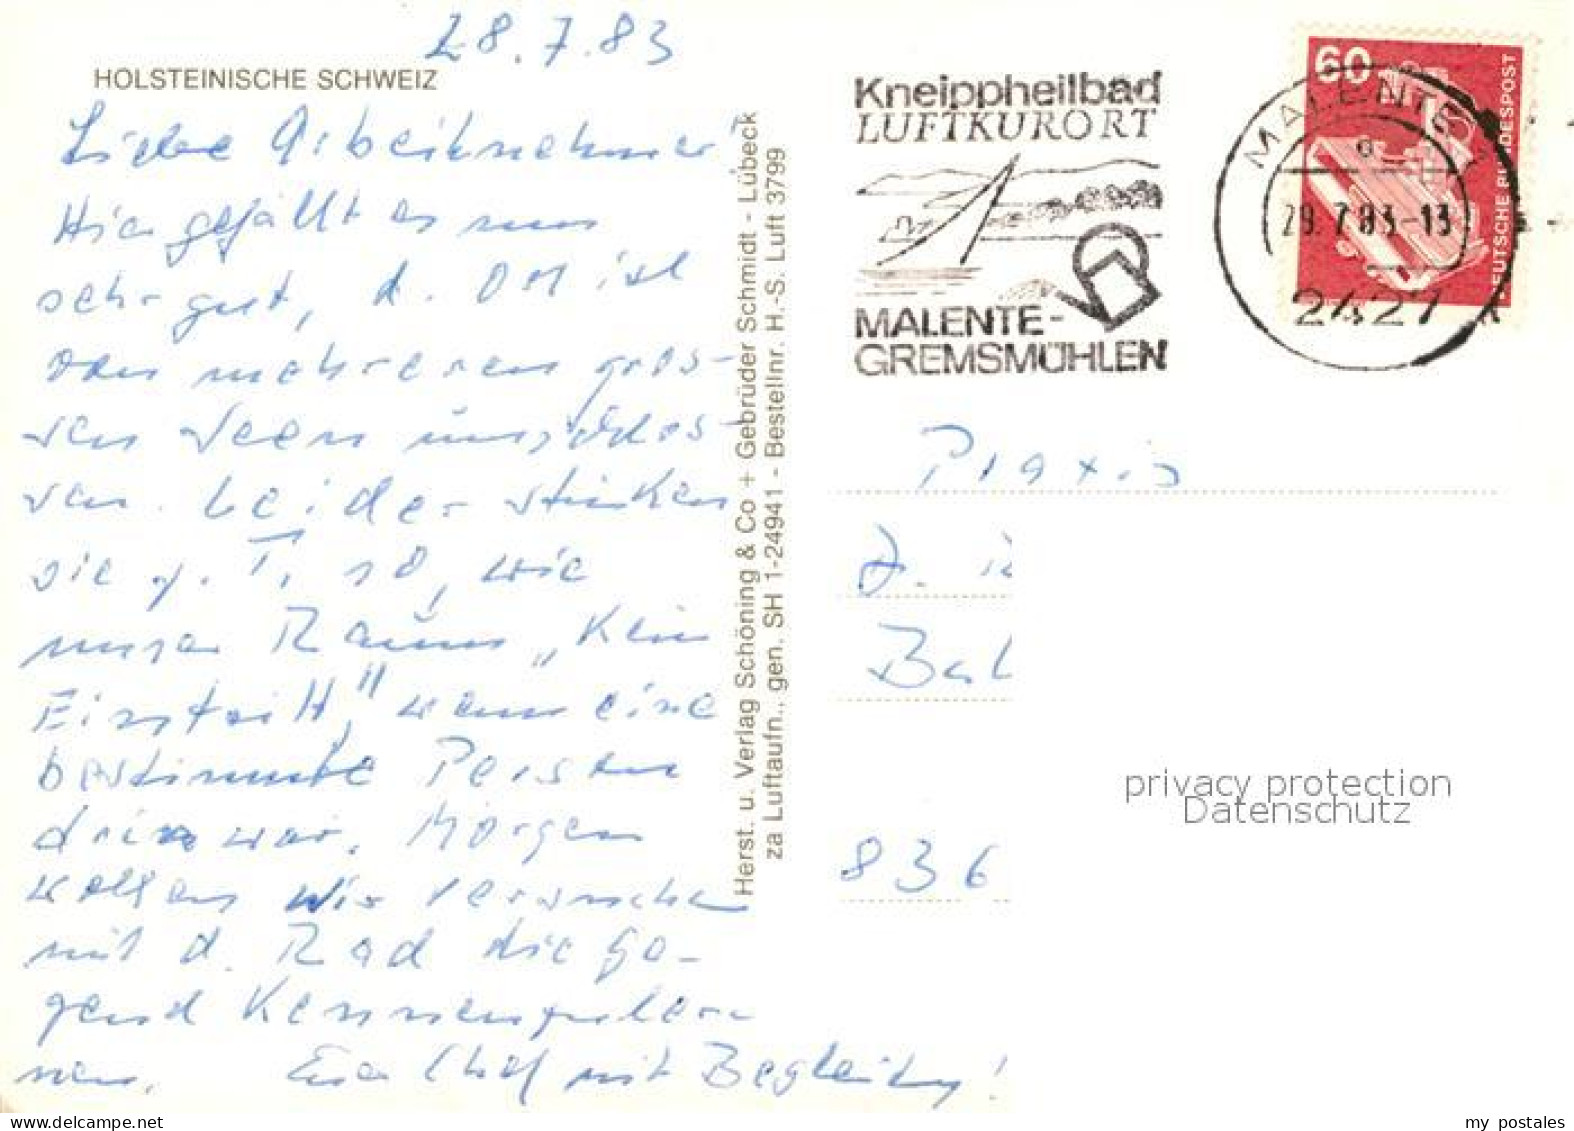 28.7.83
HOLSTEINISCHE SCHWEIZ
Liebe Arbeitnehmer!
Hier gefällt es uns
sehr gut, d. Ort ist
von mehreren gros-
sen Seen umschlos-
sen. Leider stinken
sie z. T. so, wie
unser Raum „Kein
Eintritt", wenn eine
bestimmte Person
drin war. Morgen
wollen wir versuchen
mit d. Rad die Ge-
gend kennenzuler-
nen. Euer Chef mit Begleitung!
Herst. u. Verlag Schöning & Co + Gebrüder Schmidt - Lübeck
za Luftaufn., gen. SH 1-24941 - Bestellnr. H.-S. Luft 3799
Kneippheilbad
LUFTKURORT
MALENTE-
GREMSMÜHLEN
60
DEUTSCHE BUNDESPOST
MALENTE 1
29.7.83-13
2427
Praxis
D.
Bah
836
privacy protection
Datenschutz
my postales